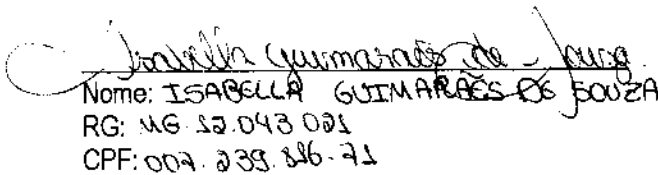 Isabella Guimarães de Souza
Nome: ISABELLA GUIMARÃES DE SOUZA
RG: MG 12.043 021
CPF: 007.239.816-71